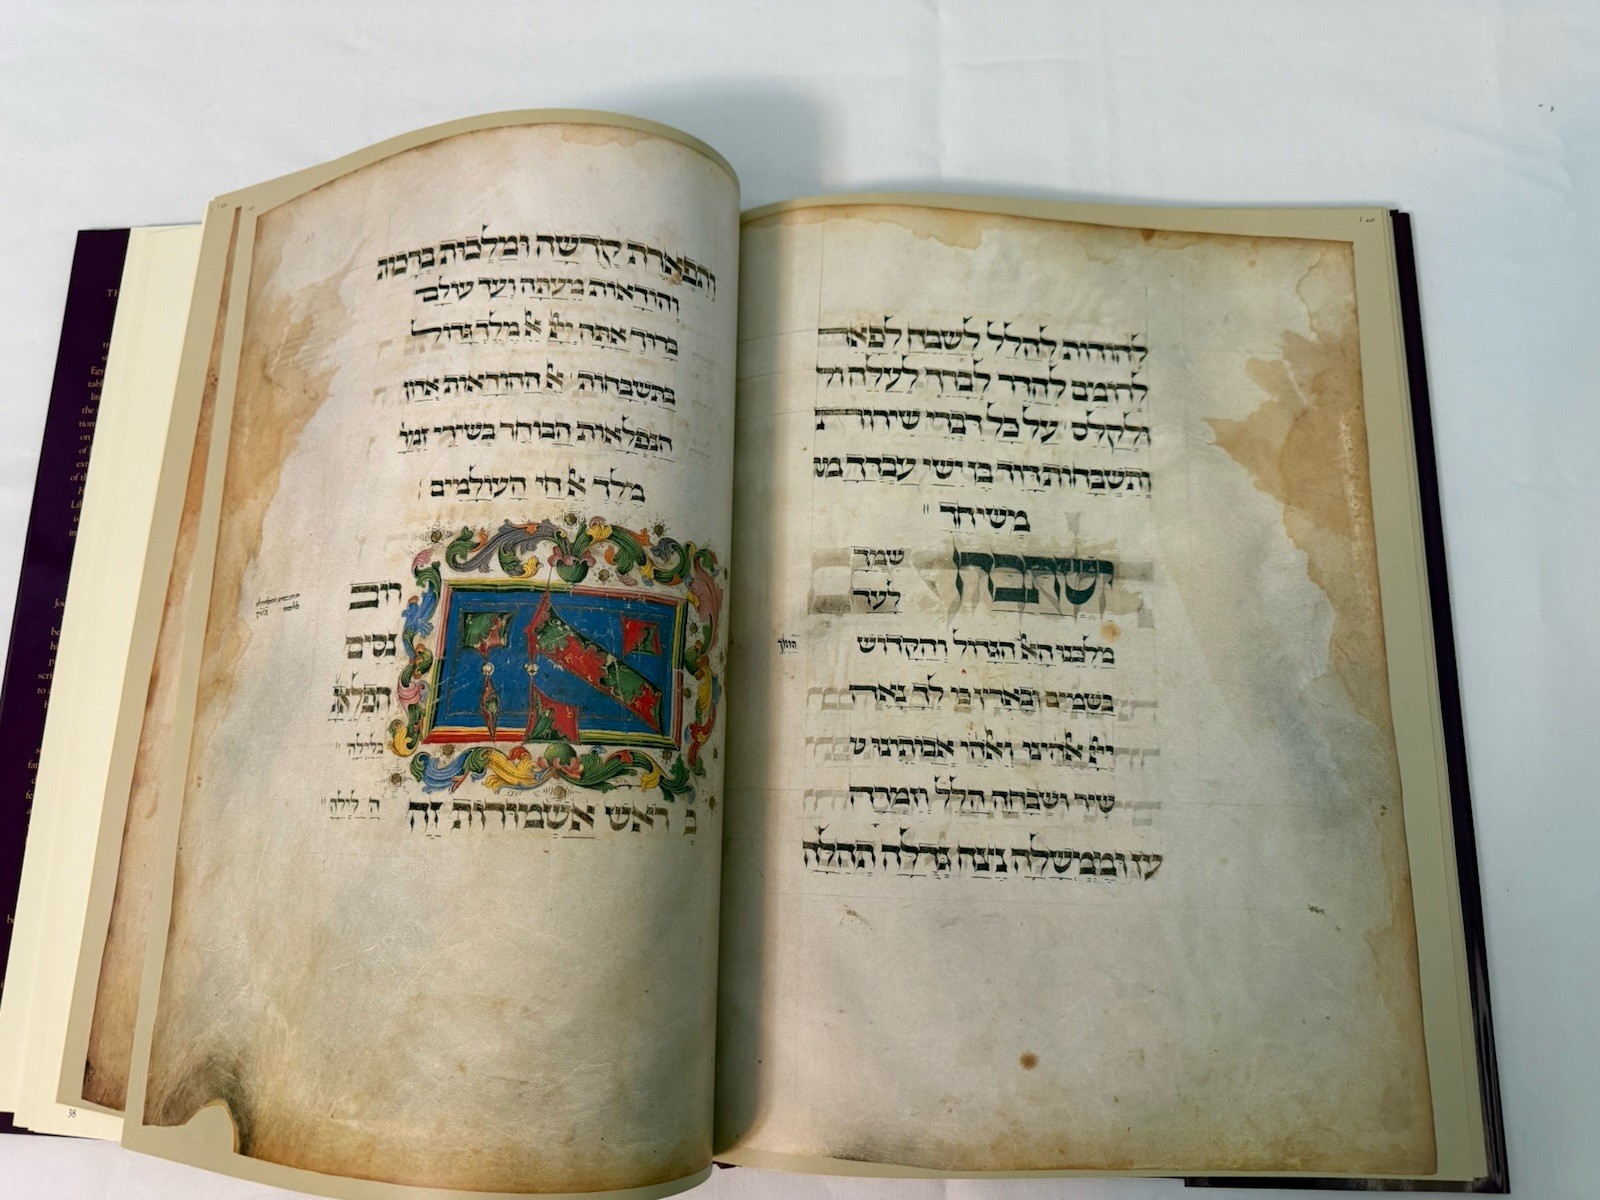 להודות להלל לשבח לפאר
לרומם להדר לברך לעלה ול
ולקלס על כל דברי שירות
ותשבחות דוד בן ישי עבדך מש
משיחך "
ישתבח שמך
לעד
מלכנו הﭏ הגדול והקדוש
בשמים ובארץ כי לך נאה
ייי ﭏהינו וﭏהי אבותינו ש
שיר ושבחה הלל וזמרה
עז וממשלה נצח גדלה תהלה
ותפארת קדשה ומלכות ברכות
והודאות מעתה ועד עולם
ברוך אתה ייי ﭏ מלך גדול
בתשבחות ﭏ ההודאות אדון
הנפלאות הבוחר בשירי זמר
מלך ﭏ חי העולמים
אז
רוב
נסים
הפלאת
בלילה "
בראש אשמורות זה
הלילה "
38